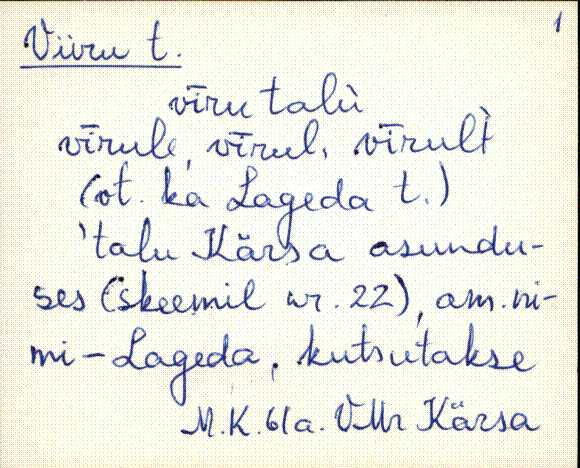 1
Viiru t.
vīru talù
vīrule, vīrul, vīrult̀
(vt. ka Lageda t.)
'talu Kärsa asundu-
ses (skeemil nr. 22), am. ni-
mi - Lageda, kutsutakse
M.K. 61a. VMr Kärsa